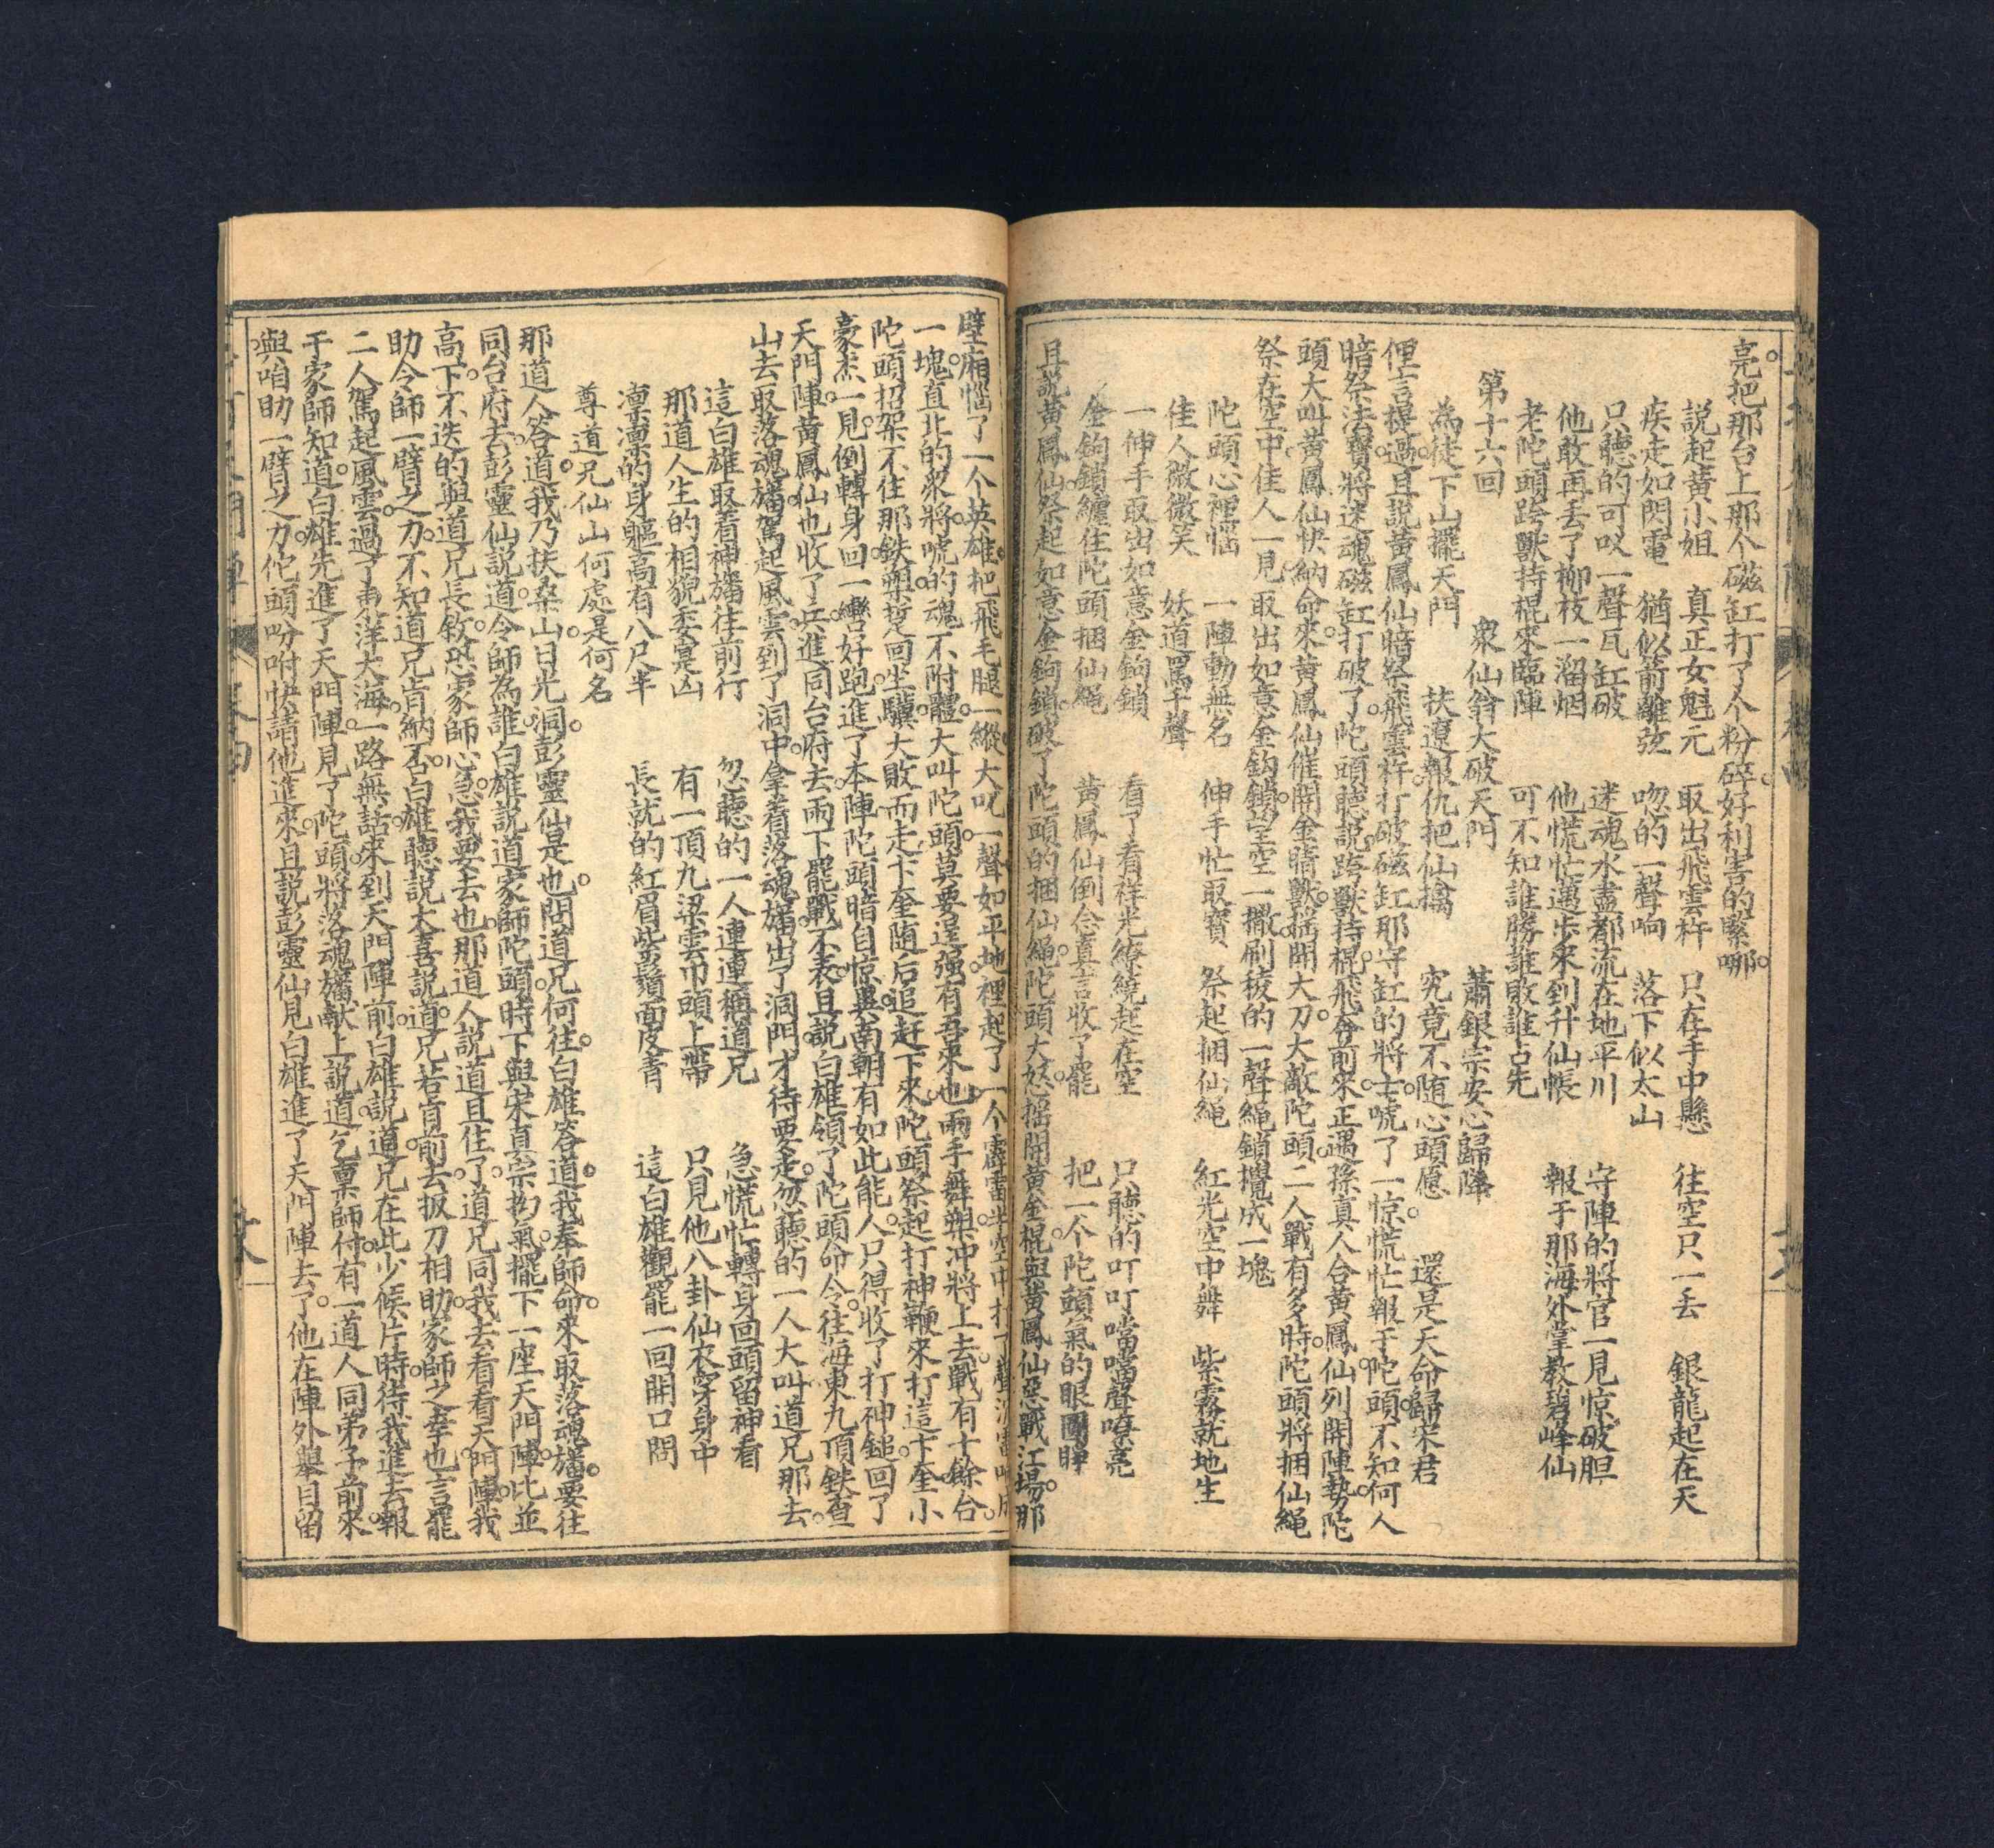 亮。把那台上那个磁缸打了个粉碎。好利害的緊哪。
說起黃小姐　真正女魁元　取出飛雲杵　只在手中懸　往空只一丢　銀龍起在天
疾走如閃電　猶似箭離弦　唿的一聲响　落下似太山
只聽的可吹一聲瓦缸破　迷魂水盡都流在地平川　守陣的將官一見惊破胆
他敢再丢了柳枝一溜烟　他慌忙邁步來到升仙帳　報于那海外掌教碧峰仙
老陀頭跨獸持棍來臨陣　可不知誰勝誰敗誰占先
第十六回　衆仙翁大破天門　蕭銀宗安心歸降
為徒下山擺天門　扶遼報仇把仙擒　究竟不随心頭愿　還是天命歸宋君
俚言提過。且説黃鳳仙暗祭飛雲杵。打破磁缸。那守缸的將士。唬了一惊。慌忙報于陀頭。不知何人
暗祭法寶。將迷魂磁缸打破了。陀頭聽説。跨獸持棍。飛奔前來。正遇孫真人合黃鳳仙列開陣勢。陀
頭大叫黃鳳仙快納命來。黃鳳仙催開金睛獸。揺開大刀。大敵陀頭。二人戰有多時。陀頭將捆仙繩
祭在空中。佳人一見。取出如意金鈎鎖。望空一撒。刷稜的一聲。繩鎖攪成一塊
陀頭心裡惱　一陣動無名　伸手忙取寶　祭起捆仙繩　紅光空中舞　紫霧就地生
佳人微微笑　妖道罵千聲
一伸手取出如意金鈎鎖　看了看祥光繚繞起在空　只聽的叮叮噹噹聲嘹亮
金鈎鎖纏住陀頭捆仙繩　黃鳳仙倒念真言收了罷　把一个陀頭氣的眼圓睁
且説黃鳳仙祭起如意金鈎鎖。破了陀頭的捆仙繩。陀頭大怒。揺開黃金棍。與黃鳳仙惡戰江塲。那
壁廂惱了一个英雄。把飛毛腿一縱。大叱一聲。如平地裡起了一个霹雷。半空中打了
一塊。直北的衆將。唬的魂不附體。大叫陀頭。莫要逞强。有吾來也。兩手舞槊。冲將上去。戰有十餘合。
陀頭招架不住那鉄槊。望回坐驥。大敗而走。卞奎随后追赶下來。陀頭祭起打神鞭來打。這卞奎小
豪杰一見。倒轉身回一轡。好跑。進了本陣。陀頭暗自惊異。南朝有如此能人。只得收了打神鎚。回了
天門陣。黃鳳仙也收了兵。進同台府去。兩下罷戰不表。且説白雄領了陀頭命令。往海東九頂鉄查
山去取落魂旛。駕起風雲。到了洞中。拿着落魂旛。出了洞門。才待要走。忽聽的一人大叫道兄那去。
這白雄取着神旛往前行　忽聽的一人連連稱道兄　急慌忙轉身回頭留神看
那道人生的相貌委寔凶　有一頂九梁雲巾頭上帶　只見他八卦仙衣穿身中
凛凛的身軀高有八尺半　長就的紅眉紫鬚面皮青　這白雄觀罷一回開口問
尊道兄仙山何處是何名
那道人答道。我乃扶桑山日光洞。彭靈仙是也。問道兄何往。白雄答道。我奉師命。來取落魂旛。要往
同台府去。彭靈仙説道。令師為誰。白雄説道。家師陀頭。時下與宋真宗拘氣。擺下一座天門陣。比並
高下。不迭的與道兄長敘。恐家師心急。我要去也。那道人説道。且住了。道兄同我去看看天門陣。我
助令師一臂之力。不知道兄肯納否。白雄聽説大喜。説道。道兄若肯前去扳刀相助。家師之幸也。言罷
二人駕起風雲。過了東洋大海。一路無話。來到天門陣前。白雄説道。道兄在此少候片時。待我進去報
于家師知道。白雄先進了天門陣。見了陀頭。將落魂旛献上。説道。乞禀師付。有一道人。同弟子前來
與咱助一臂之力。佗頭吩咐。快請他進來。且説彭靈仙見白雄進了天門陣去了。他在陣外舉目留